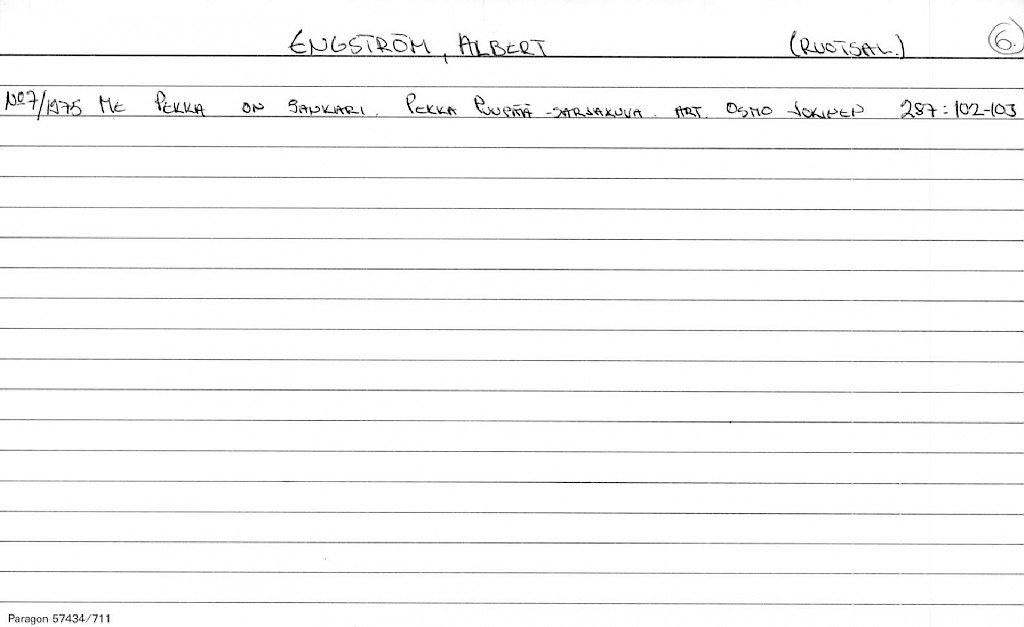 ENGSTRÖM, ALBERT (RUOTSAL.) 6.
No 7/1975 ME PEKKA ON SANKARI. PEKKA PUUPÄÄ -SARJAKUVA. ART. OSMO JOKINEN 287:102-103
Paragon 57434/711